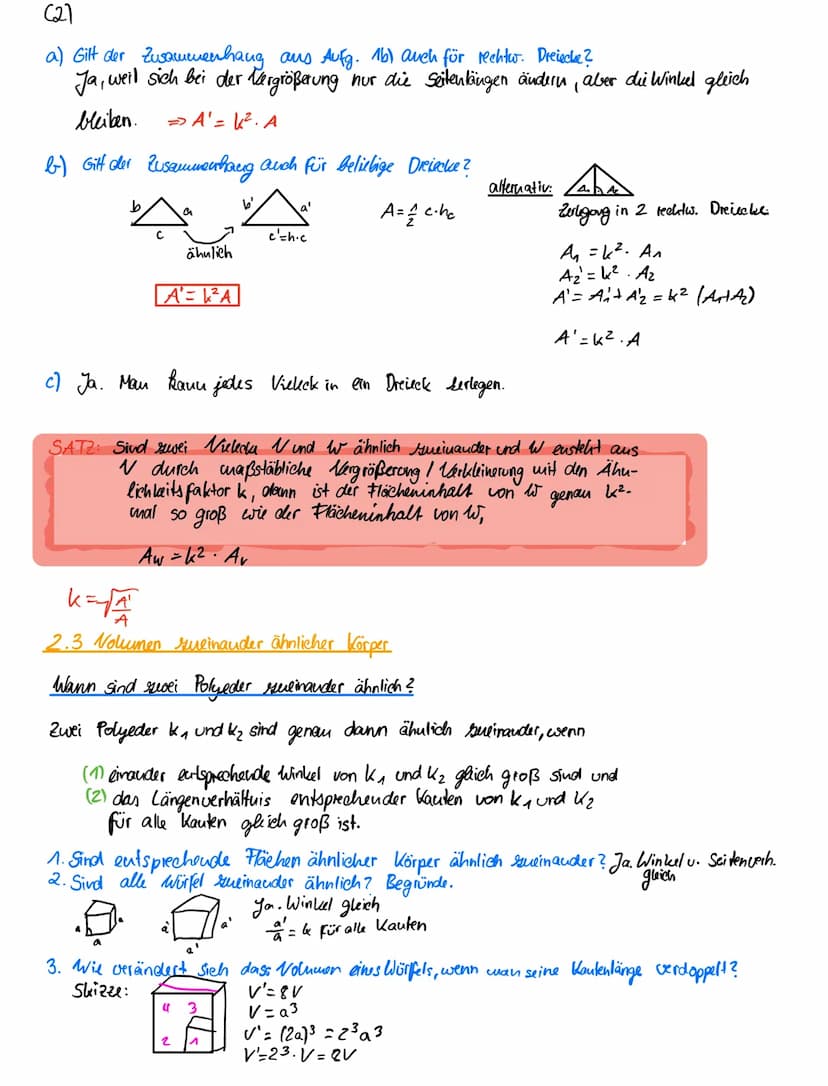 (2)
a) Gilt der Zusammenhang aus Aufg. 1b) auch für rechtw. Dreiecke?
Ja, weil sich bei der Vergrößerung nur die Seitenlängen ändern, aber die Winkel gleich
bleiben. => A' = k². A
b) Gilt der Zusammenhang auch für beliebige Dreiecke?
b a c
ähnlich
b' a' c'=h·c
A = 1/2 c·hc
A' = k²A
alternativ: A₁ h A₂
Zerlegung in 2 rechtw. Dreiecke
A₁ = k². A₁
A₂' = k² . A₂
A' = A₁'+ A'₂ = k² (A₁+A₂)
A' = k². A
c) Ja. Man kann jedes Vieleck in ein Dreieck zerlegen.
SATZ: Sind zwei Vielecke V und W ähnlich zueinander und W ensteht aus
V durch maßstäbliche Vergrößerung / Verkleinerung mit den Ähn-
lichkeitsfaktor k, dann ist der Flächeninhalt von W genau k²-
mal so groß wie der Flächeninhalt von W,
Aw = k² · Av
k = √A'/A
2.3 Volumen zueinander ähnlicher Körper
Wann sind zwei Polyeder zueinander ähnlich?
Zwei Polyeder k₁ und k₂ sind genau dann ähnlich zueinander, wenn
(1) einander entsprechende Winkel von k₁ und k₂ gleich groß sind und
(2) das Längenverhältnis entsprechender Kanten von k₁ und k₂
für alle Kanten gleich groß ist.
1. Sind entsprechende Flächen ähnlicher Körper ähnlich zueinander? Ja. Winkel u. Seitenverh.
gleich
2. Sind alle Würfel zueinander ähnlich? Begründe.
a a a
a' a' a'
Ja. Winkel gleich
a'/a = k für alle Kanten
3. Wie verändert sich dass Volumen eines Würfels, wenn man seine Kantenlänge verdoppelt?
Skizze:
4 3
2 1
V' = 8V
V = a³
V' = (2a)³ = 2³a³
V' = 2³. V = 8V